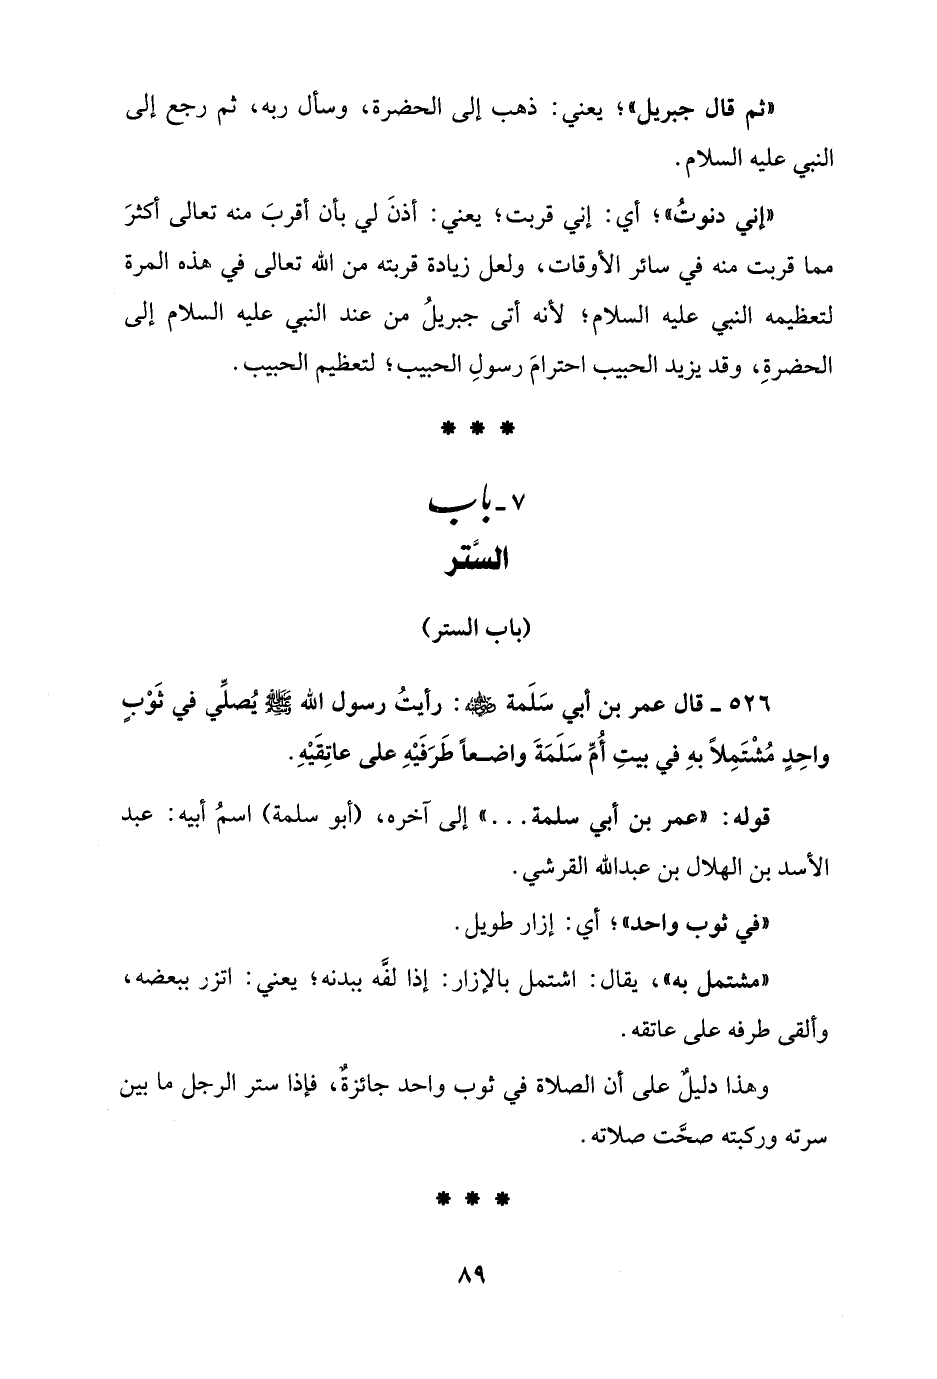 «ثم قال جبريل»؛ يعني: ذهب إلى الحضرة، وسأل ربه، ثم رجع إلى
النبي عليه السلام.
«إني دنوتُ»؛ أي: إني قربت؛ يعني: أذنَ لي بأن أقربَ منه تعالى أكثرَ
مما قربت منه في سائر الأوقات، ولعل زيادة قربته من الله تعالى في هذه المرة
لتعظيمه النبي عليه السلام؛ لأنه أتى جبريلُ من عند النبي عليه السلام إلى
الحضرةِ، وقد يزيد الحبيب احترامَ رسولِ الحبيب؛ لتعظيم الحبيب.
* * *
٧ ـ باب
السَّتر
(باب الستر)
٥٢٦ ـ قال عمر بن أبي سَلَمة ﷺ: رأيتُ رسول الله ﷺ يُصلِّي في ثَوْبٍ
واحِدٍ مُشْتَمِلاً بهِ في بيتِ أُمِّ سَلَمَةَ واضعاً طَرَفَيْهِ على عاتِقَيْهِ.
قوله: «عمر بن أبي سلمة...» إلى آخره، (أبو سلمة) اسمُ أبيه: عبد
الأسد بن الهلال بن عبدالله القرشي.
«في ثوب واحد»؛ أي: إزار طويل.
«مشتمل به»، يقال: اشتمل بالإزار: إذا لفَّه ببدنه؛ يعني: اتزر ببعضه،
وألقى طرفه على عاتقه.
وهذا دليلٌ على أن الصلاة في ثوب واحد جائزةٌ، فإذا ستر الرجل ما بين
سرته وركبته صحَّت صلاته.
* * *
٨٩